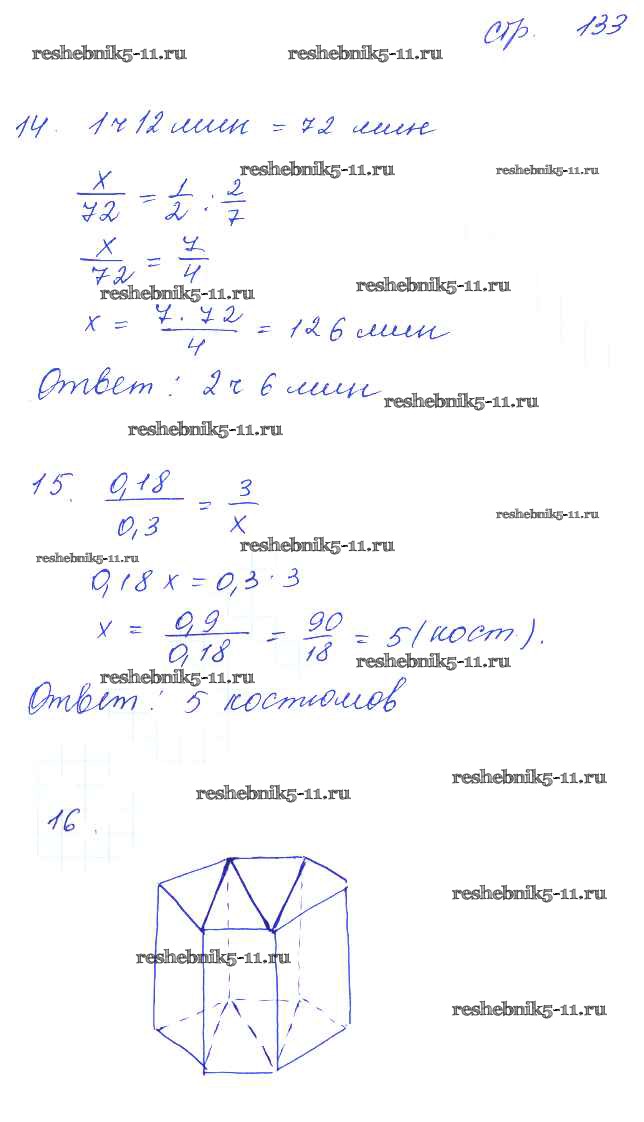 стр. 133
reshebnik5-11.ru reshebnik5-11.ru
14. 1ч 12 мин = 72 мин
reshebnik5-11.ru reshebnik5-11.ru
x/72 = 1/2 : 2/7
x/72 = 7/4
reshebnik5-11.ru reshebnik5-11.ru
x = 7·72/4 = 126 мин
Ответ: 2ч 6 мин
reshebnik5-11.ru
reshebnik5-11.ru
15. 0,18/0,3 = 3/x
reshebnik5-11.ru
reshebnik5-11.ru
reshebnik5-11.ru
0,18 x = 0,3·3
x = 0,9/0,18 = 90/18 = 5 (кост.).
reshebnik5-11.ru
reshebnik5-11.ru
Ответ: 5 костюмов
reshebnik5-11.ru
reshebnik5-11.ru
16.
reshebnik5-11.ru
reshebnik5-11.ru
reshebnik5-11.ru